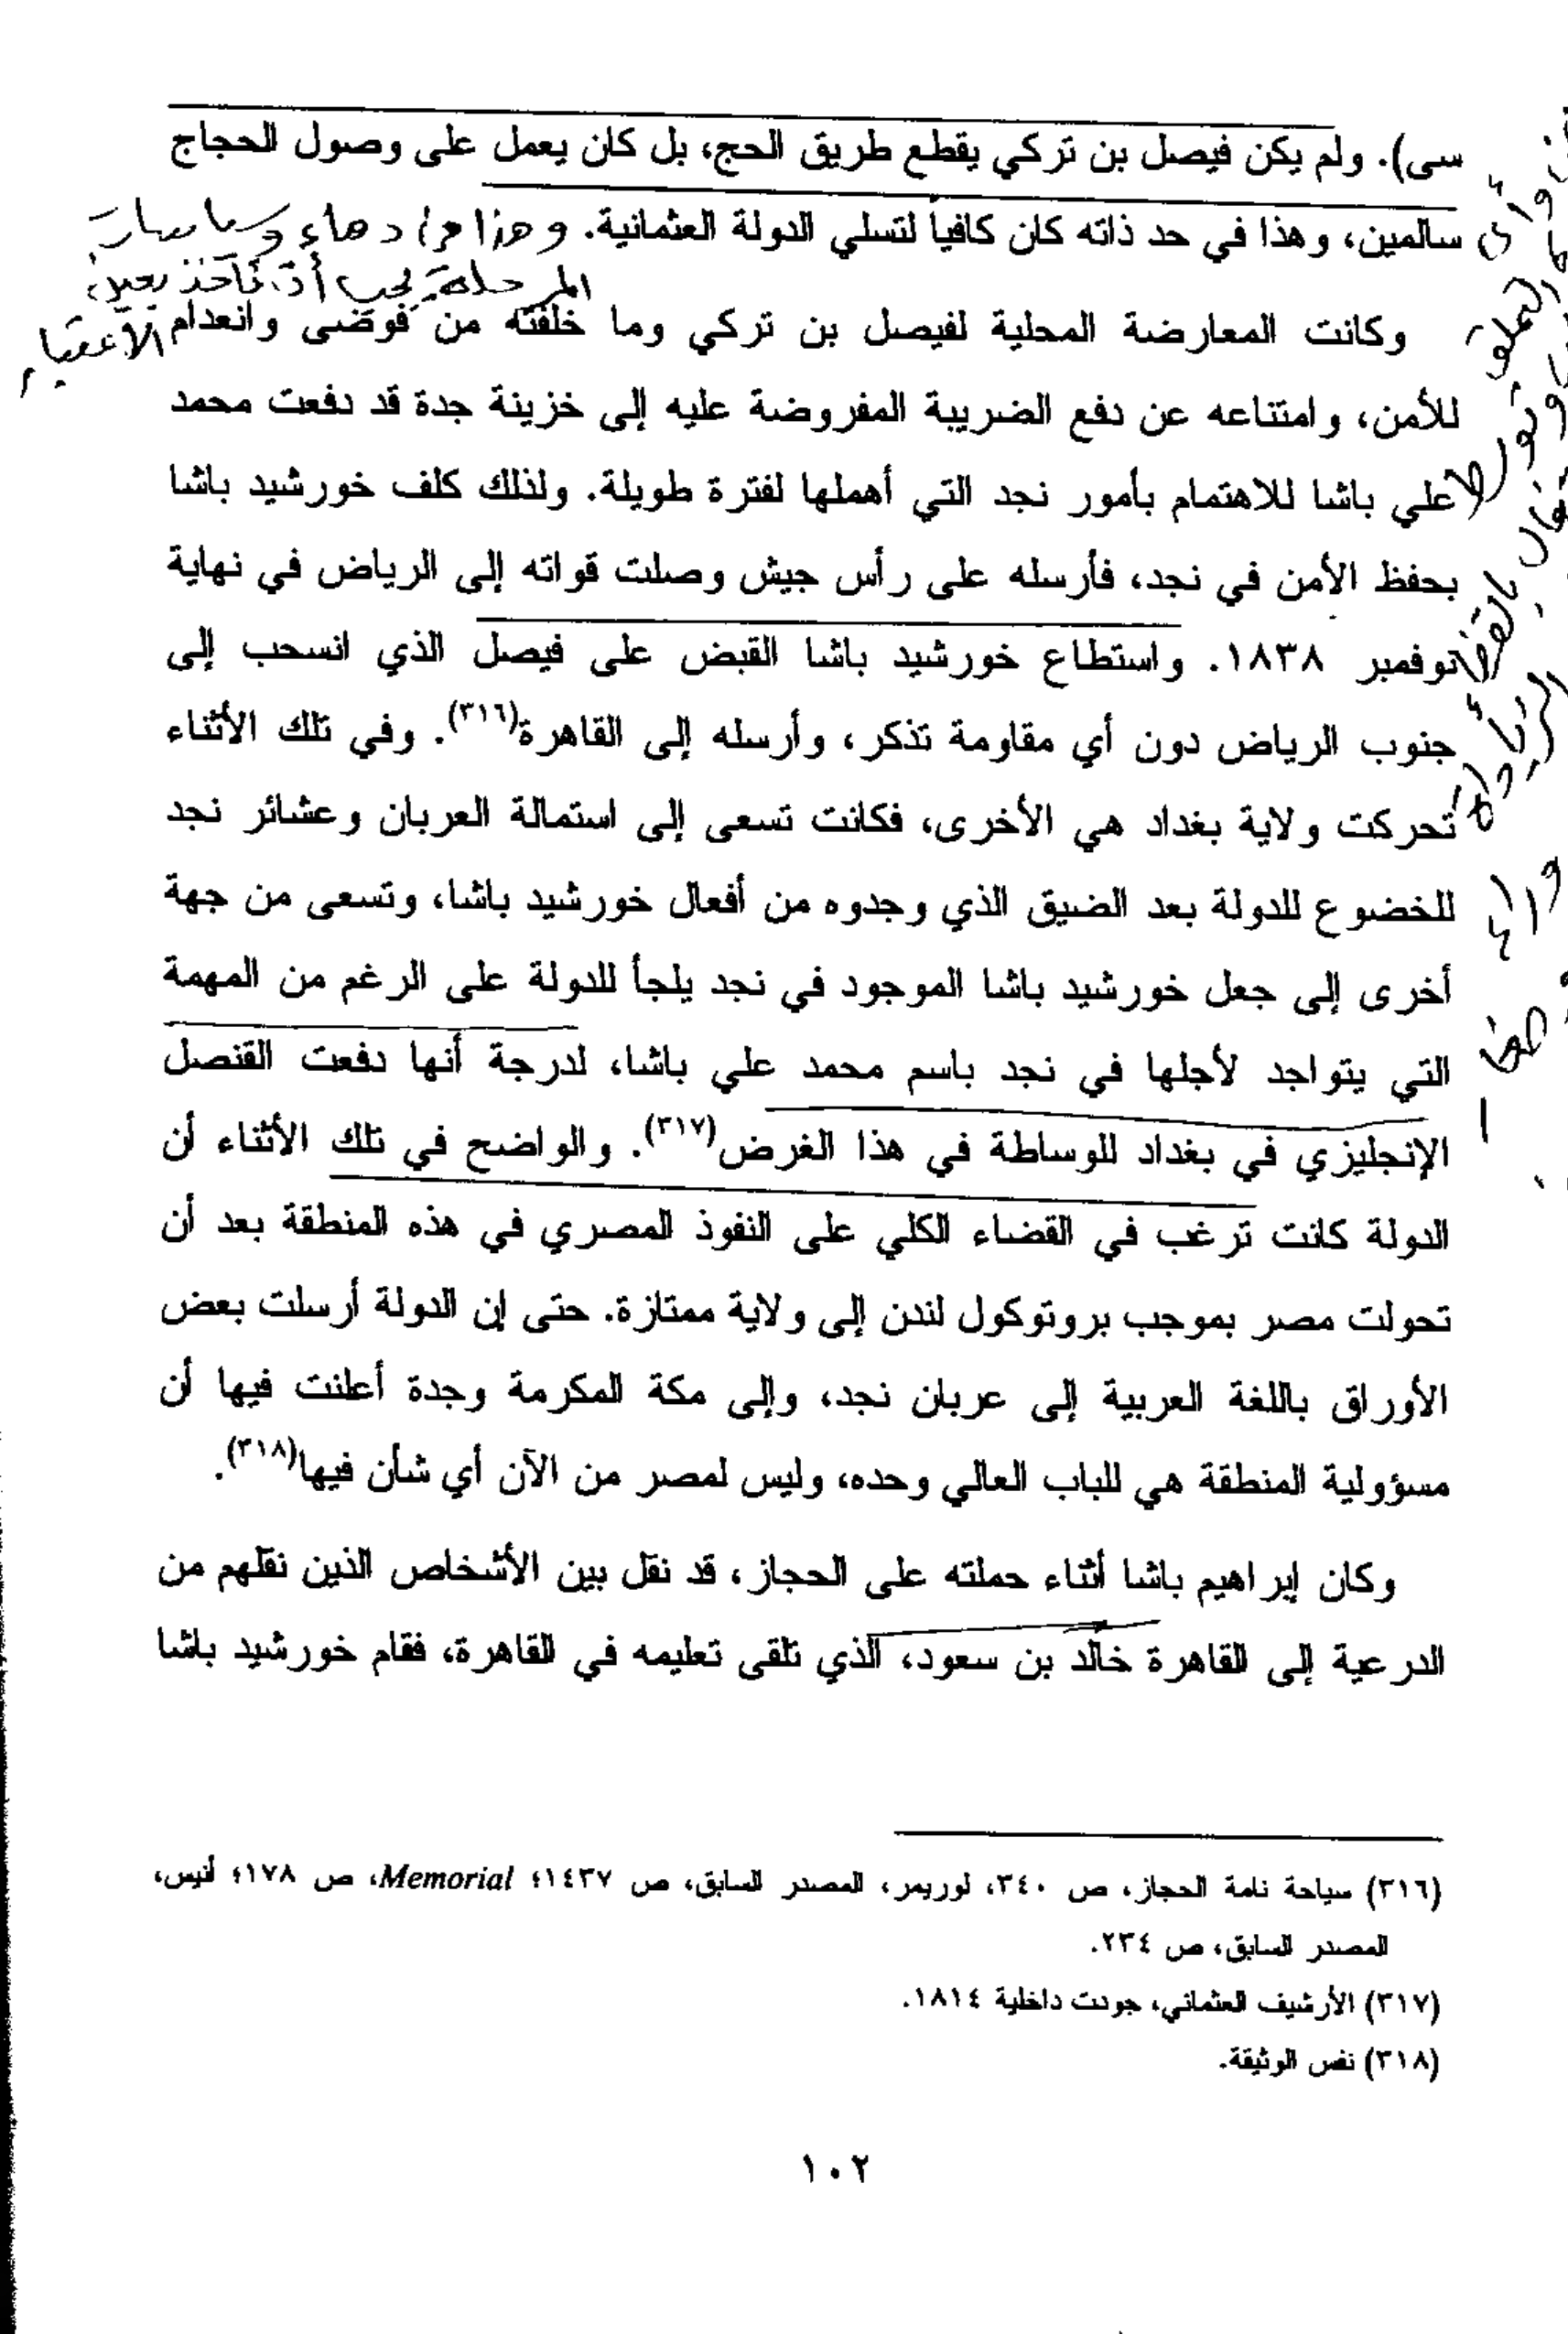 سى). ولم يكن فيصل بن تركي يقطع طريق الحج، بل كان يعمل على وصول الحجاج
سالمين، وهذا في حد ذاته كان كافياً لتسلي الدولة العثمانية. وهذا من دهاء وسياسة
المرحلة يجب أن تأخذ بعين
الاعتبار
وكانت المعارضة المحلية لفيصل بن تركي وما خلفته من فوضى وانعدام
للأمن، وامتناعه عن دفع الضريبة المفروضة عليه إلى خزينة جدة قد دفعت محمد
علي باشا للاهتمام بأمور نجد التي أهملها لفترة طويلة. ولذلك كلف خورشيد باشا
بحفظ الأمن في نجد، فأرسله على رأس جيش وصلت قواته إلى الرياض في نهاية
نوفمبر ١٨٣٨. واستطاع خورشيد باشا القبض على فيصل الذي انسحب إلى
جنوب الرياض دون أي مقاومة تذكر، وأرسله إلى القاهرة(٣١٦). وفي تلك الأثناء
تحركت ولاية بغداد هي الأخرى، فكانت تسعى إلى استمالة العربان وعشائر نجد
للخضوع للدولة بعد الضيق الذي وجدوه من أفعال خورشيد باشا، وتسعى من جهة
أخرى إلى جعل خورشيد باشا الموجود في نجد يلجأ للدولة على الرغم من المهمة
التي يتواجد لأجلها في نجد باسم محمد علي باشا، لدرجة أنها دفعت القنصل
الإنجليزي في بغداد للوساطة في هذا الغرض(٣١٧). والواضح في تلك الأثناء أن
الدولة كانت ترغب في القضاء الكلي على النفوذ المصري في هذه المنطقة بعد أن
تحولت مصر بموجب بروتوكول لندن إلى ولاية ممتازة. حتى إن الدولة أرسلت بعض
الأوراق باللغة العربية إلى عربان نجد، وإلى مكة المكرمة وجدة أعلنت فيها أن
مسؤولية المنطقة هي للباب العالي وحده، وليس لمصر من الآن أي شأن فيها(٣١٨).
وكان إبراهيم باشا أثناء حملته على الحجاز، قد نقل بين الأشخاص الذين نقلهم من
الدرعية إلى القاهرة خالد بن سعود، الذي تلقى تعليمه في القاهرة، فقام خورشيد باشا
(٣١٦) سياحة نامة الحجاز، ص ٣٤٠، لوريمر، المصدر السابق، ص ١٤٣٧؛ Memorial، ص ١٧٨؛ أنيس،
المصدر السابق، ص ٢٣٤.
(٣١٧) الأرشيف العثماني، جودت داخلية ١٨١٤.
(٣١٨) نفس الوثيقة.
١٠٢